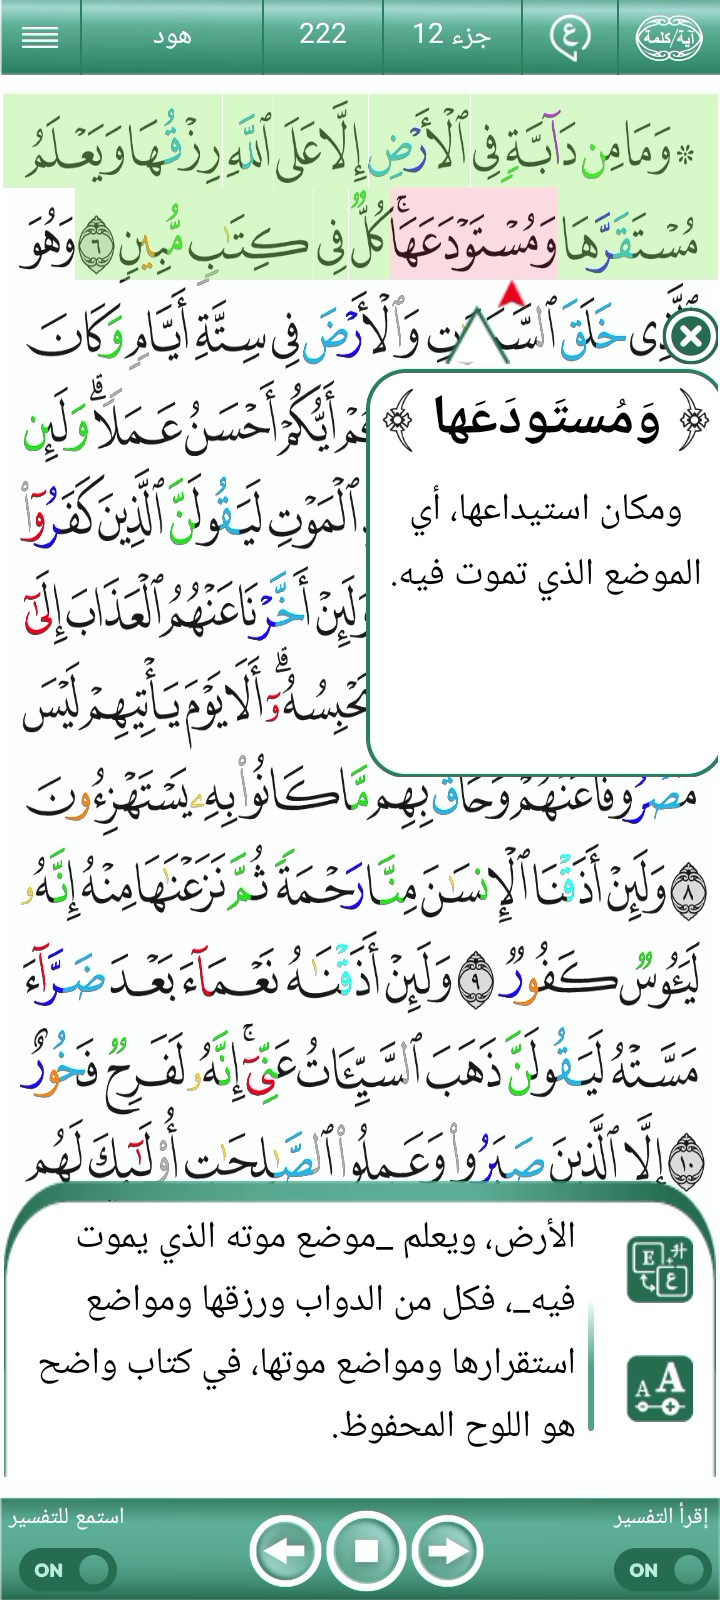 آية/كلمة
ع
جزء 12
222
هود
۞ وَمَا مِن دَآبَّةٍ فِى ٱلْأَرْضِ إِلَّا عَلَى ٱللَّهِ رِزْقُهَا وَيَعْلَمُ
مُسْتَقَرَّهَا وَمُسْتَوْدَعَهَا ۚ كُلٌّ فِى كِتَٰبٍ مُّبِينٍ ٦ وَهُوَ
خَلَقَ وَٱلْأَرْضَ فِى سِتَّةِ أَيَّامٍ وَكَانَ
أَيُّكُمْ أَحْسَنُ عَمَلًا ۗ وَلَئِن
ٱلْمَوْتِ لَيَقُولَنَّ ٱلَّذِينَ كَفَرُوٓا۟
وَلَئِنْ أَخَّرْنَا عَنْهُمُ ٱلْعَذَابَ إِلَىٰٓ
يَحْبِسُهُۥٓ ۗ أَلَا يَوْمَ يَأْتِيهِمْ لَيْسَ
مَصْرُوفًا عَنْهُمْ وَحَاقَ بِهِم مَّا كَانُوا۟ بِهِۦ يَسْتَهْزِءُونَ
٨ وَلَئِنْ أَذَقْنَا ٱلْإِنسَٰنَ مِنَّا رَحْمَةً ثُمَّ نَزَعْنَٰهَا مِنْهُ إِنَّهُۥ
لَيَـُٔوسٌ كَفُورٌ ٩ وَلَئِنْ أَذَقْنَٰهُ نَعْمَآءَ بَعْدَ ضَرَّآءَ
مَسَّتْهُ لَيَقُولَنَّ ذَهَبَ ٱلسَّيِّـَٔاتُ عَنِّىٓ ۚ إِنَّهُۥ لَفَرِحٌ فَخُورٌ
١٠ إِلَّا ٱلَّذِينَ صَبَرُوا۟ وَعَمِلُوا۟ ٱلصَّٰلِحَٰتِ أُو۟لَٰٓئِكَ لَهُم
﴿ وَمُستَودَعَها ﴾
ومكان استيداعها، أي
الموضع الذي تموت فيه.
الأرض، ويعلم _موضع موته الذي يموت
فيه_، فكل من الدواب ورزقها ومواضع
استقرارها ومواضع موتها، في كتاب واضح
هو اللوح المحفوظ.
E ع
A A
إقرأ التفسير
ON
استمع للتفسير
ON